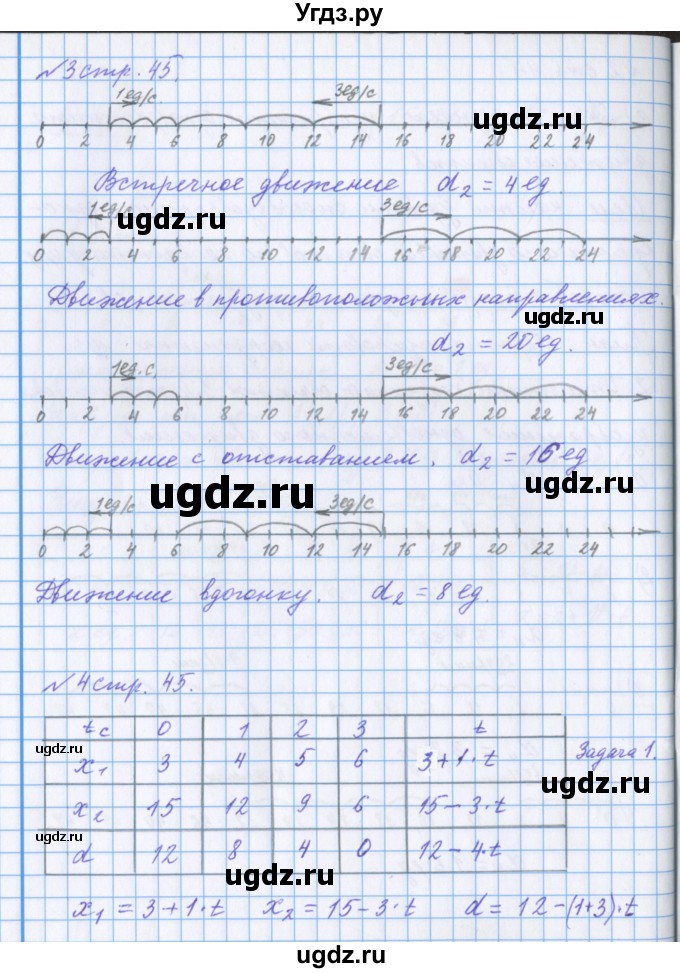 Угдз.ру
№3 стр. 45.
1ед/с 3ед/с
0 2 4 6 8 10 12 14 16 18 20 22 24
ugdz.ru
Встречное движение d₂ = 4 ед.
ugdz.ru
1ед/с 3ед/с
0 2 4 6 8 10 12 14 16 18 20 22 24
Движение в противоположных направлениях.
ugdz.ru
d₂ = 20 ед.
ugdz.ru
1ед.с 3ед/с
0 2 4 6 8 10 12 14 16 18 20 22 24
Движение с отставанием. d₂ = 16 ед
ugdz.ru ugdz.ru
1ед/с 3ед/с
0 2 4 6 8 10 12 14 16 18 20 22 24
Движение вдогонку. d₂ = 8 ед.
ugdz.ru
№4 стр. 45.
t с 0 1 2 3 t
ugdz.ru
x₁ 3 4 5 6 3+1·t Задача 1.
ugdz.ru
x₂ 15 12 9 6 15-3·t
ugdz.ru
d 12 8 4 0 12-4·t
ugdz.ru
x₁ = 3+1·t x₂ = 15-3·t d = 12-(1+3)·t
ugdz.ru
ugdz.ru